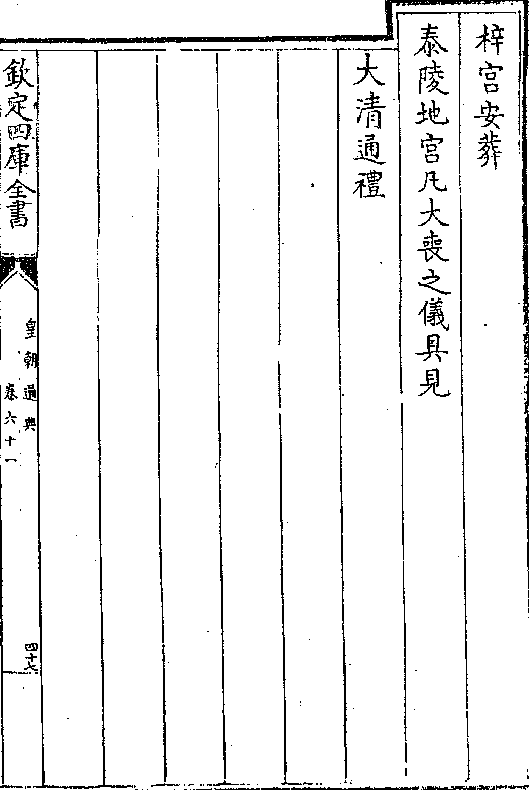 梓宫安葬
泰陵地宫凡大喪之儀具見
大清通禮
欽定四庫全書
皇朝通典
卷六十一
四十七